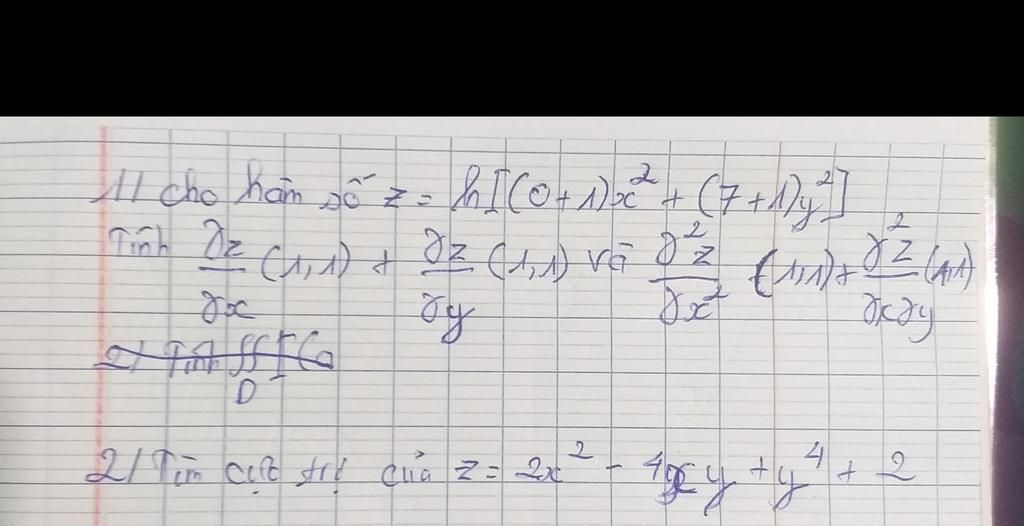 1/ Cho hàm số z = ln[(0+1)x² + (7+1)y²]
Tính ∂z/∂x (1,1) + ∂z/∂y (1,1) và ∂²z/∂x² (1,1) + ∂²z/∂x∂y (1,1)
2/ Tính ∬ [(0
D
2/ Tìm cực trị của z = 2x² - 4xy + y⁴ + 2